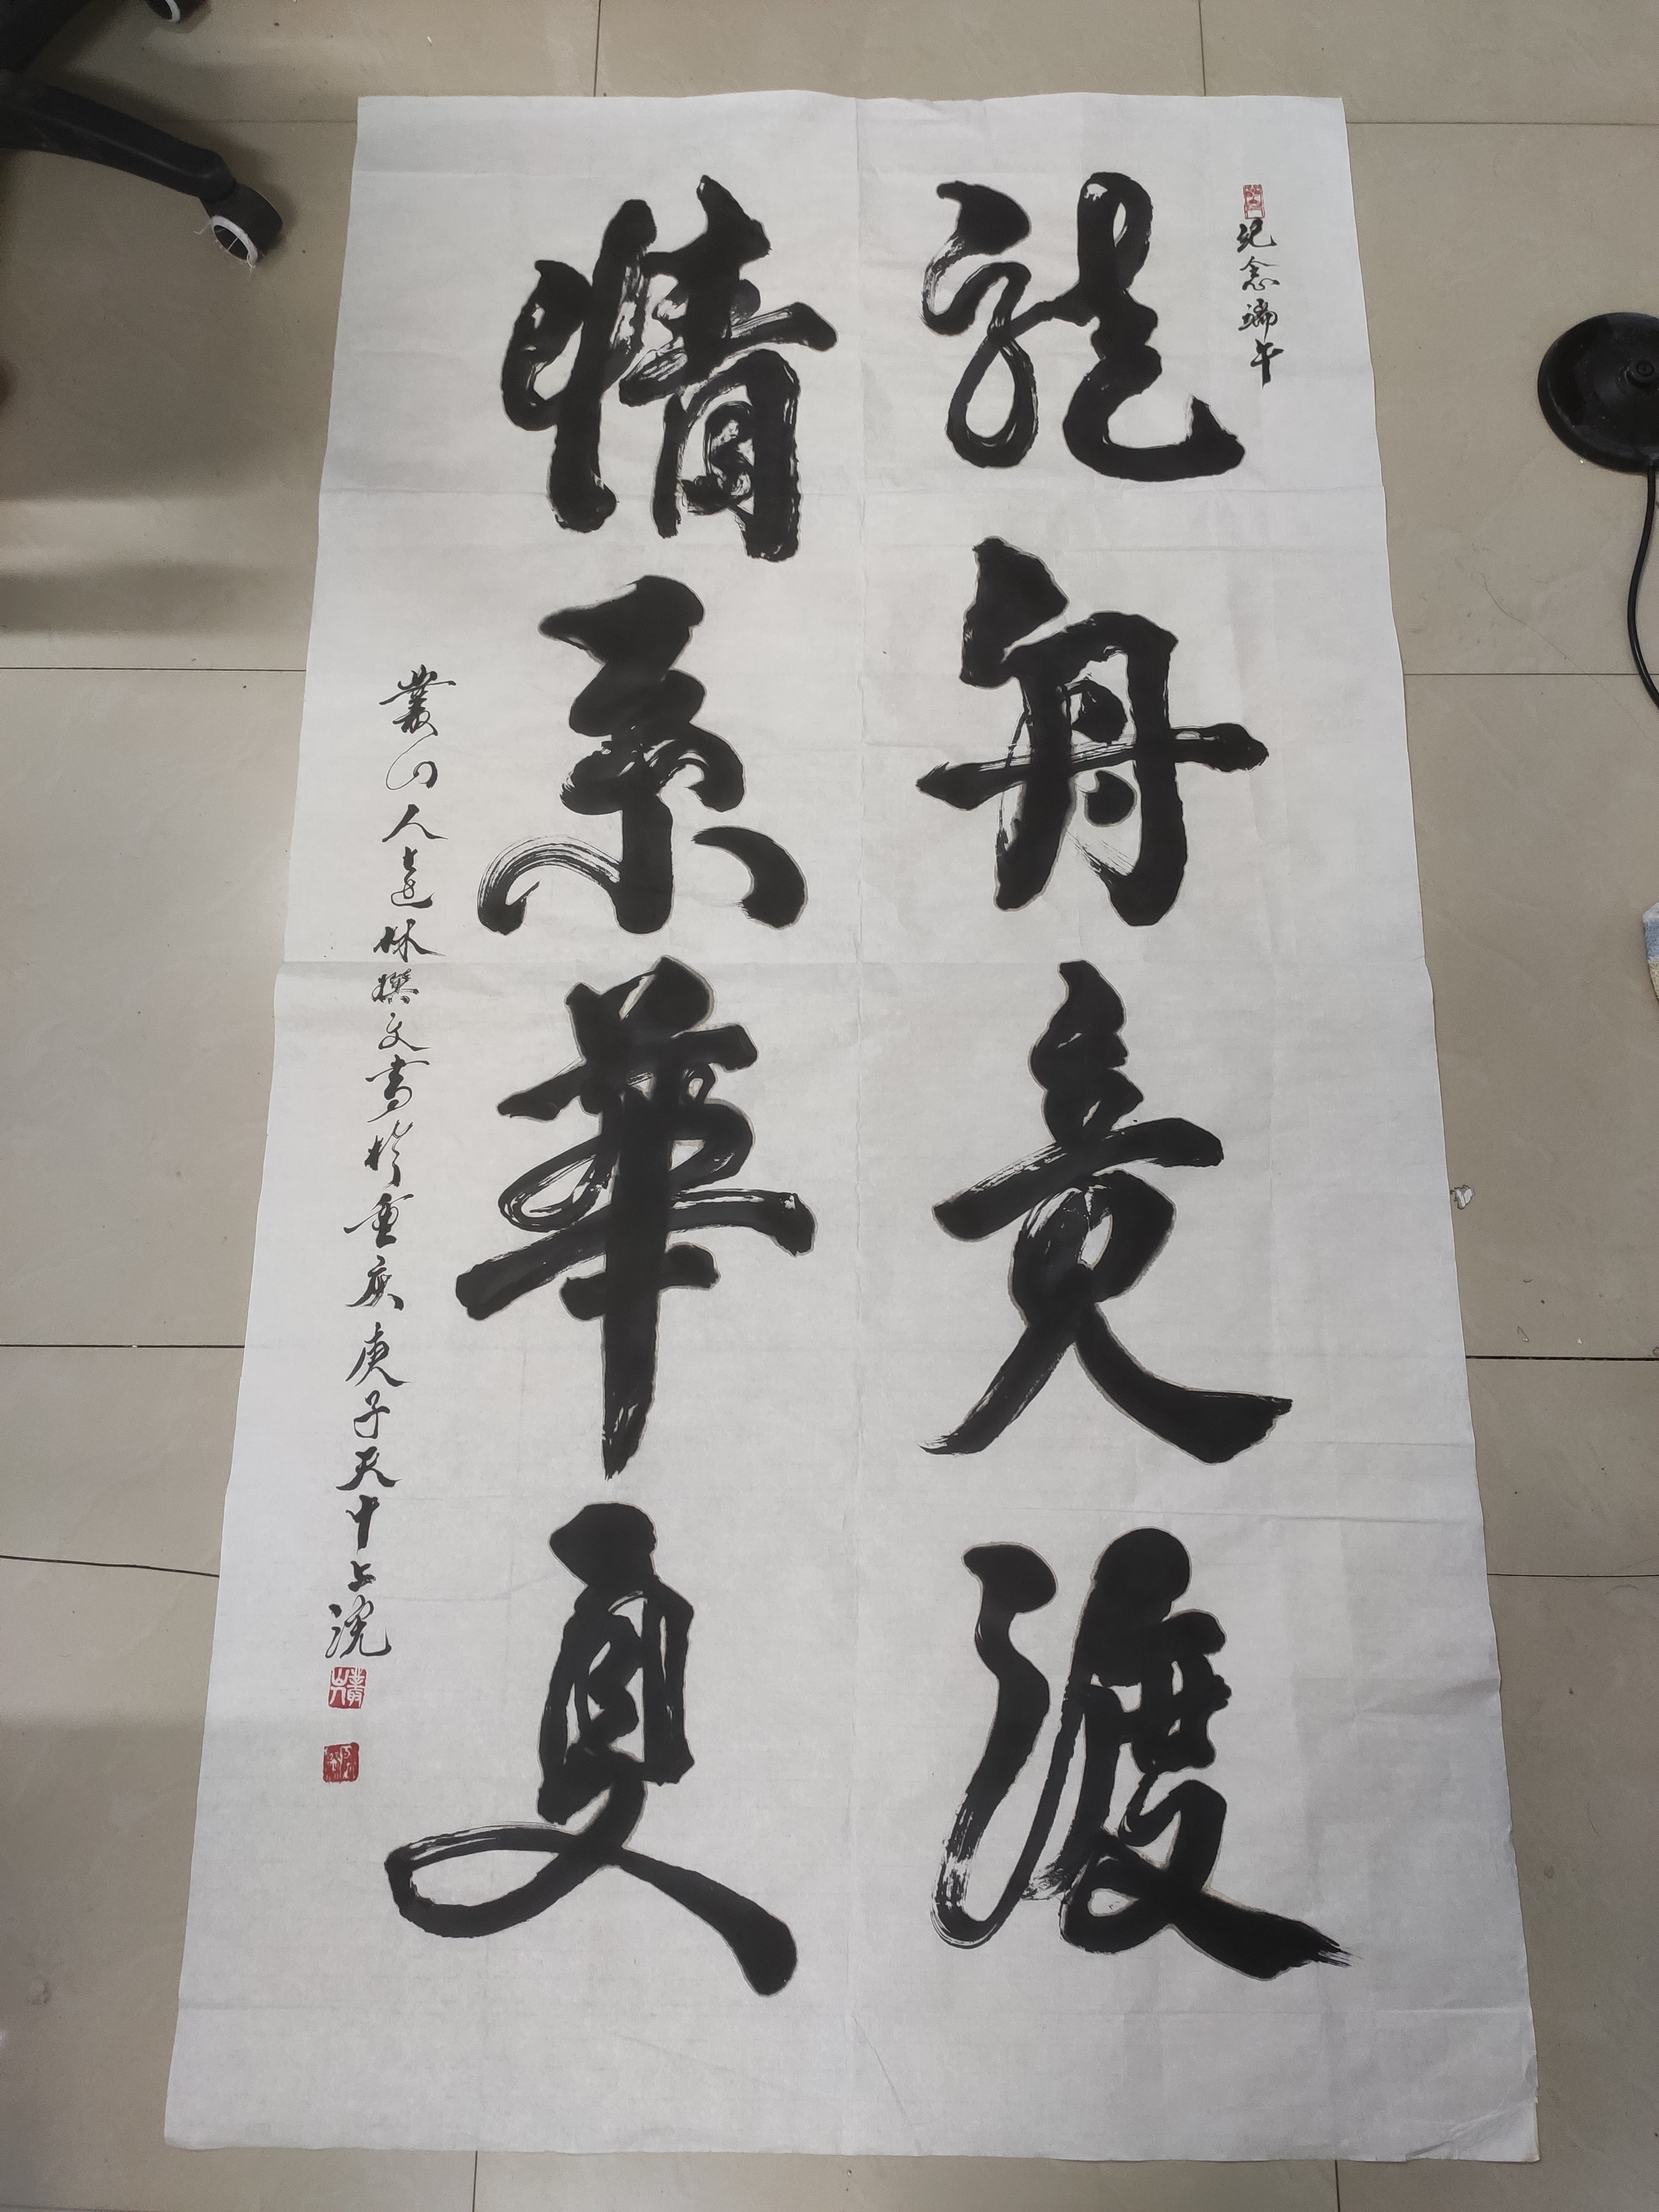 纪念端午
龍舟竞渡
情系華夏
叢山人達林撰文書於重庆庚子天中上浣